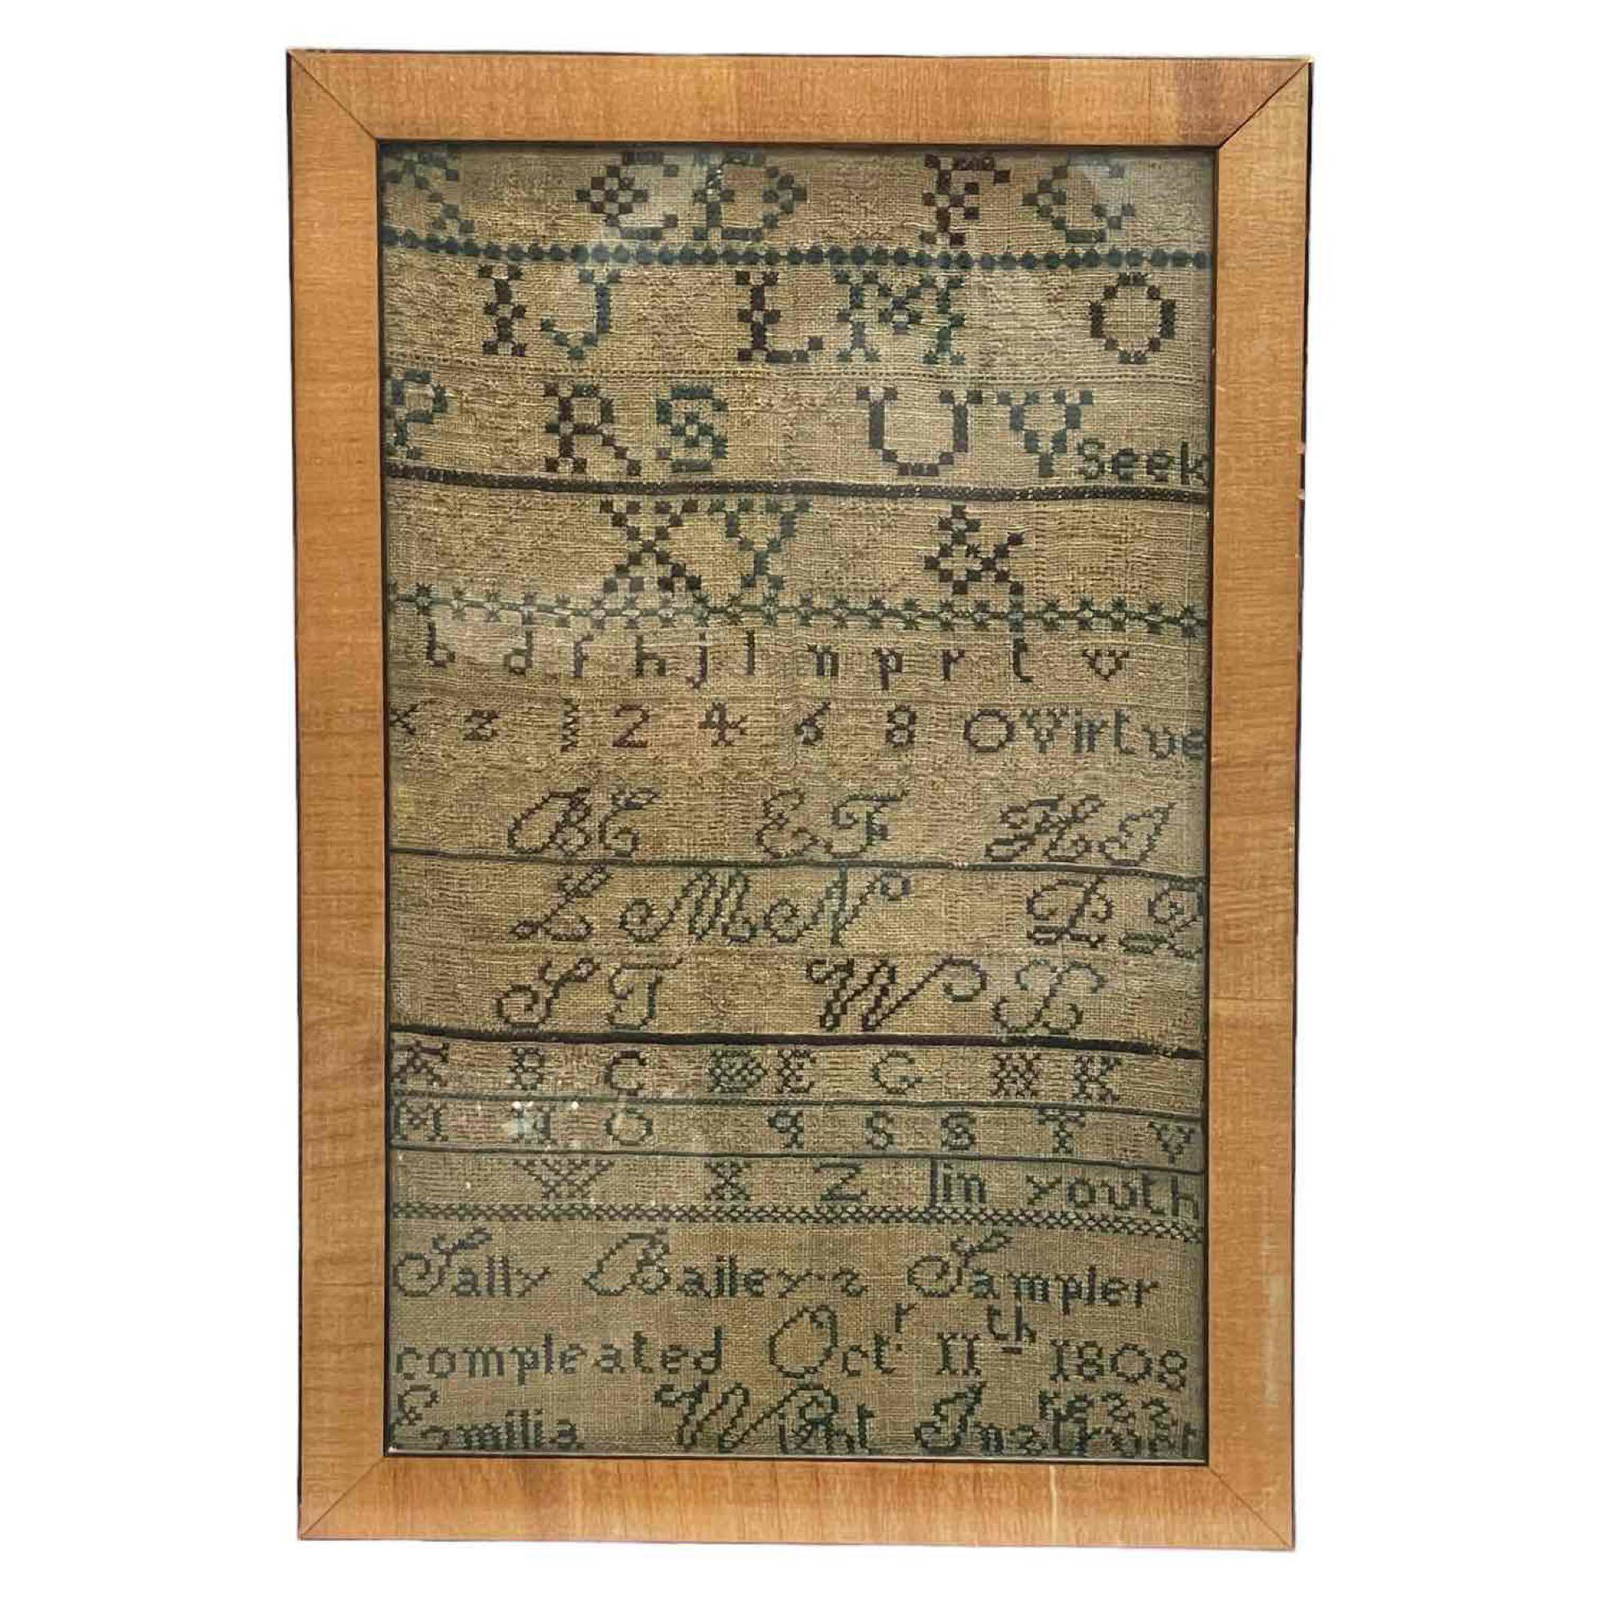 C D F G
I J L M O
P R S U V Seek
X Y &
b d f h j l n p r t v
x z w 1 2 4 6 8 0 Virtue
B C E F H I
L M N P Q
S T W
A B C D E G H K
M N O q s s T v
W X Z in youth
Sally Bailey's Sampler
compleated Octr. 11th 1808
Emilia Wight Instruct ress